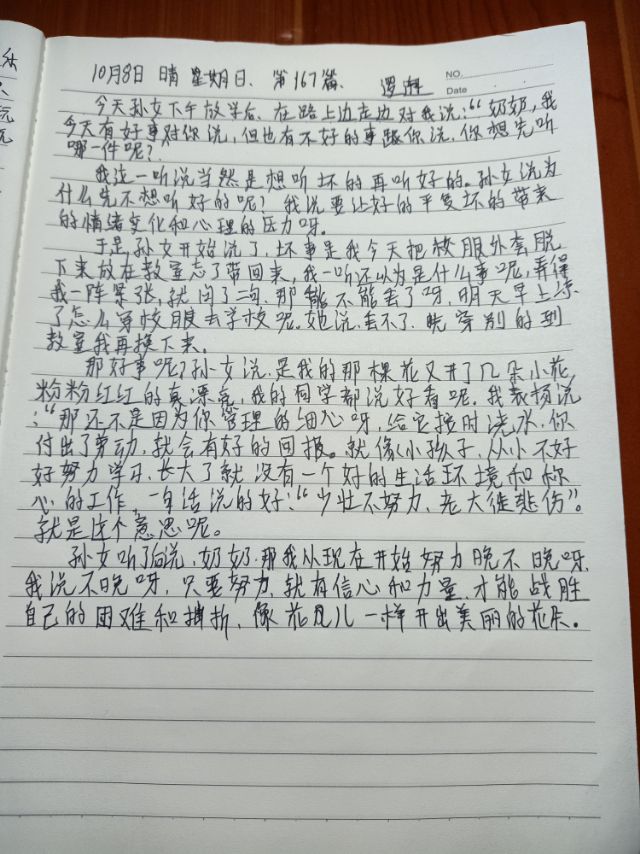 10月8日 晴 星期日. 第167篇.
NO.
Date
今天孙女下午放学后、在路上边走边对我说:“奶奶,我
今天有好事对你说,但也有不好的事跟你说,你想先听
哪一件呢?
我这一听说当然是想听坏的再听好的。孙女说为
什么先不想听好的呢?我说要让好的平复坏的带来
的情绪变化和心理的压力呀。
于是孙女开始说了,坏事是我今天把校服外套脱
下来放在教室忘了带回来,我一听还以为是什么事呢,弄得
我一阵紧张,就问了一句,那能不能丢了呀,明天早上凉
了怎么穿校服去学校呢。她说,丢不了、先穿别的到
教室我再换下来。
那好事呢?孙女说,是我的那棵花又开了几朵小花
粉粉红红的真漂亮,我的同学都说好看呢,我表扬说
:“那还不是因为你管理的细心呀,给它按时浇水,你
付出了劳动,就会有好的回报。就像小孩子,从小不好
好努力学习,长大了就没有一个好的生活环境和称
心的工作,一句话说的好:“少壮不努力,老大徒悲伤”。
就是这个意思呢。
孙女听了后说,奶奶,那我从现在开始努力晚不晚呀,
我说不晚呀,只要努力,就有信心和力量,才能战胜
自己的困难和挫折、像花儿一样开出美丽的花朵。